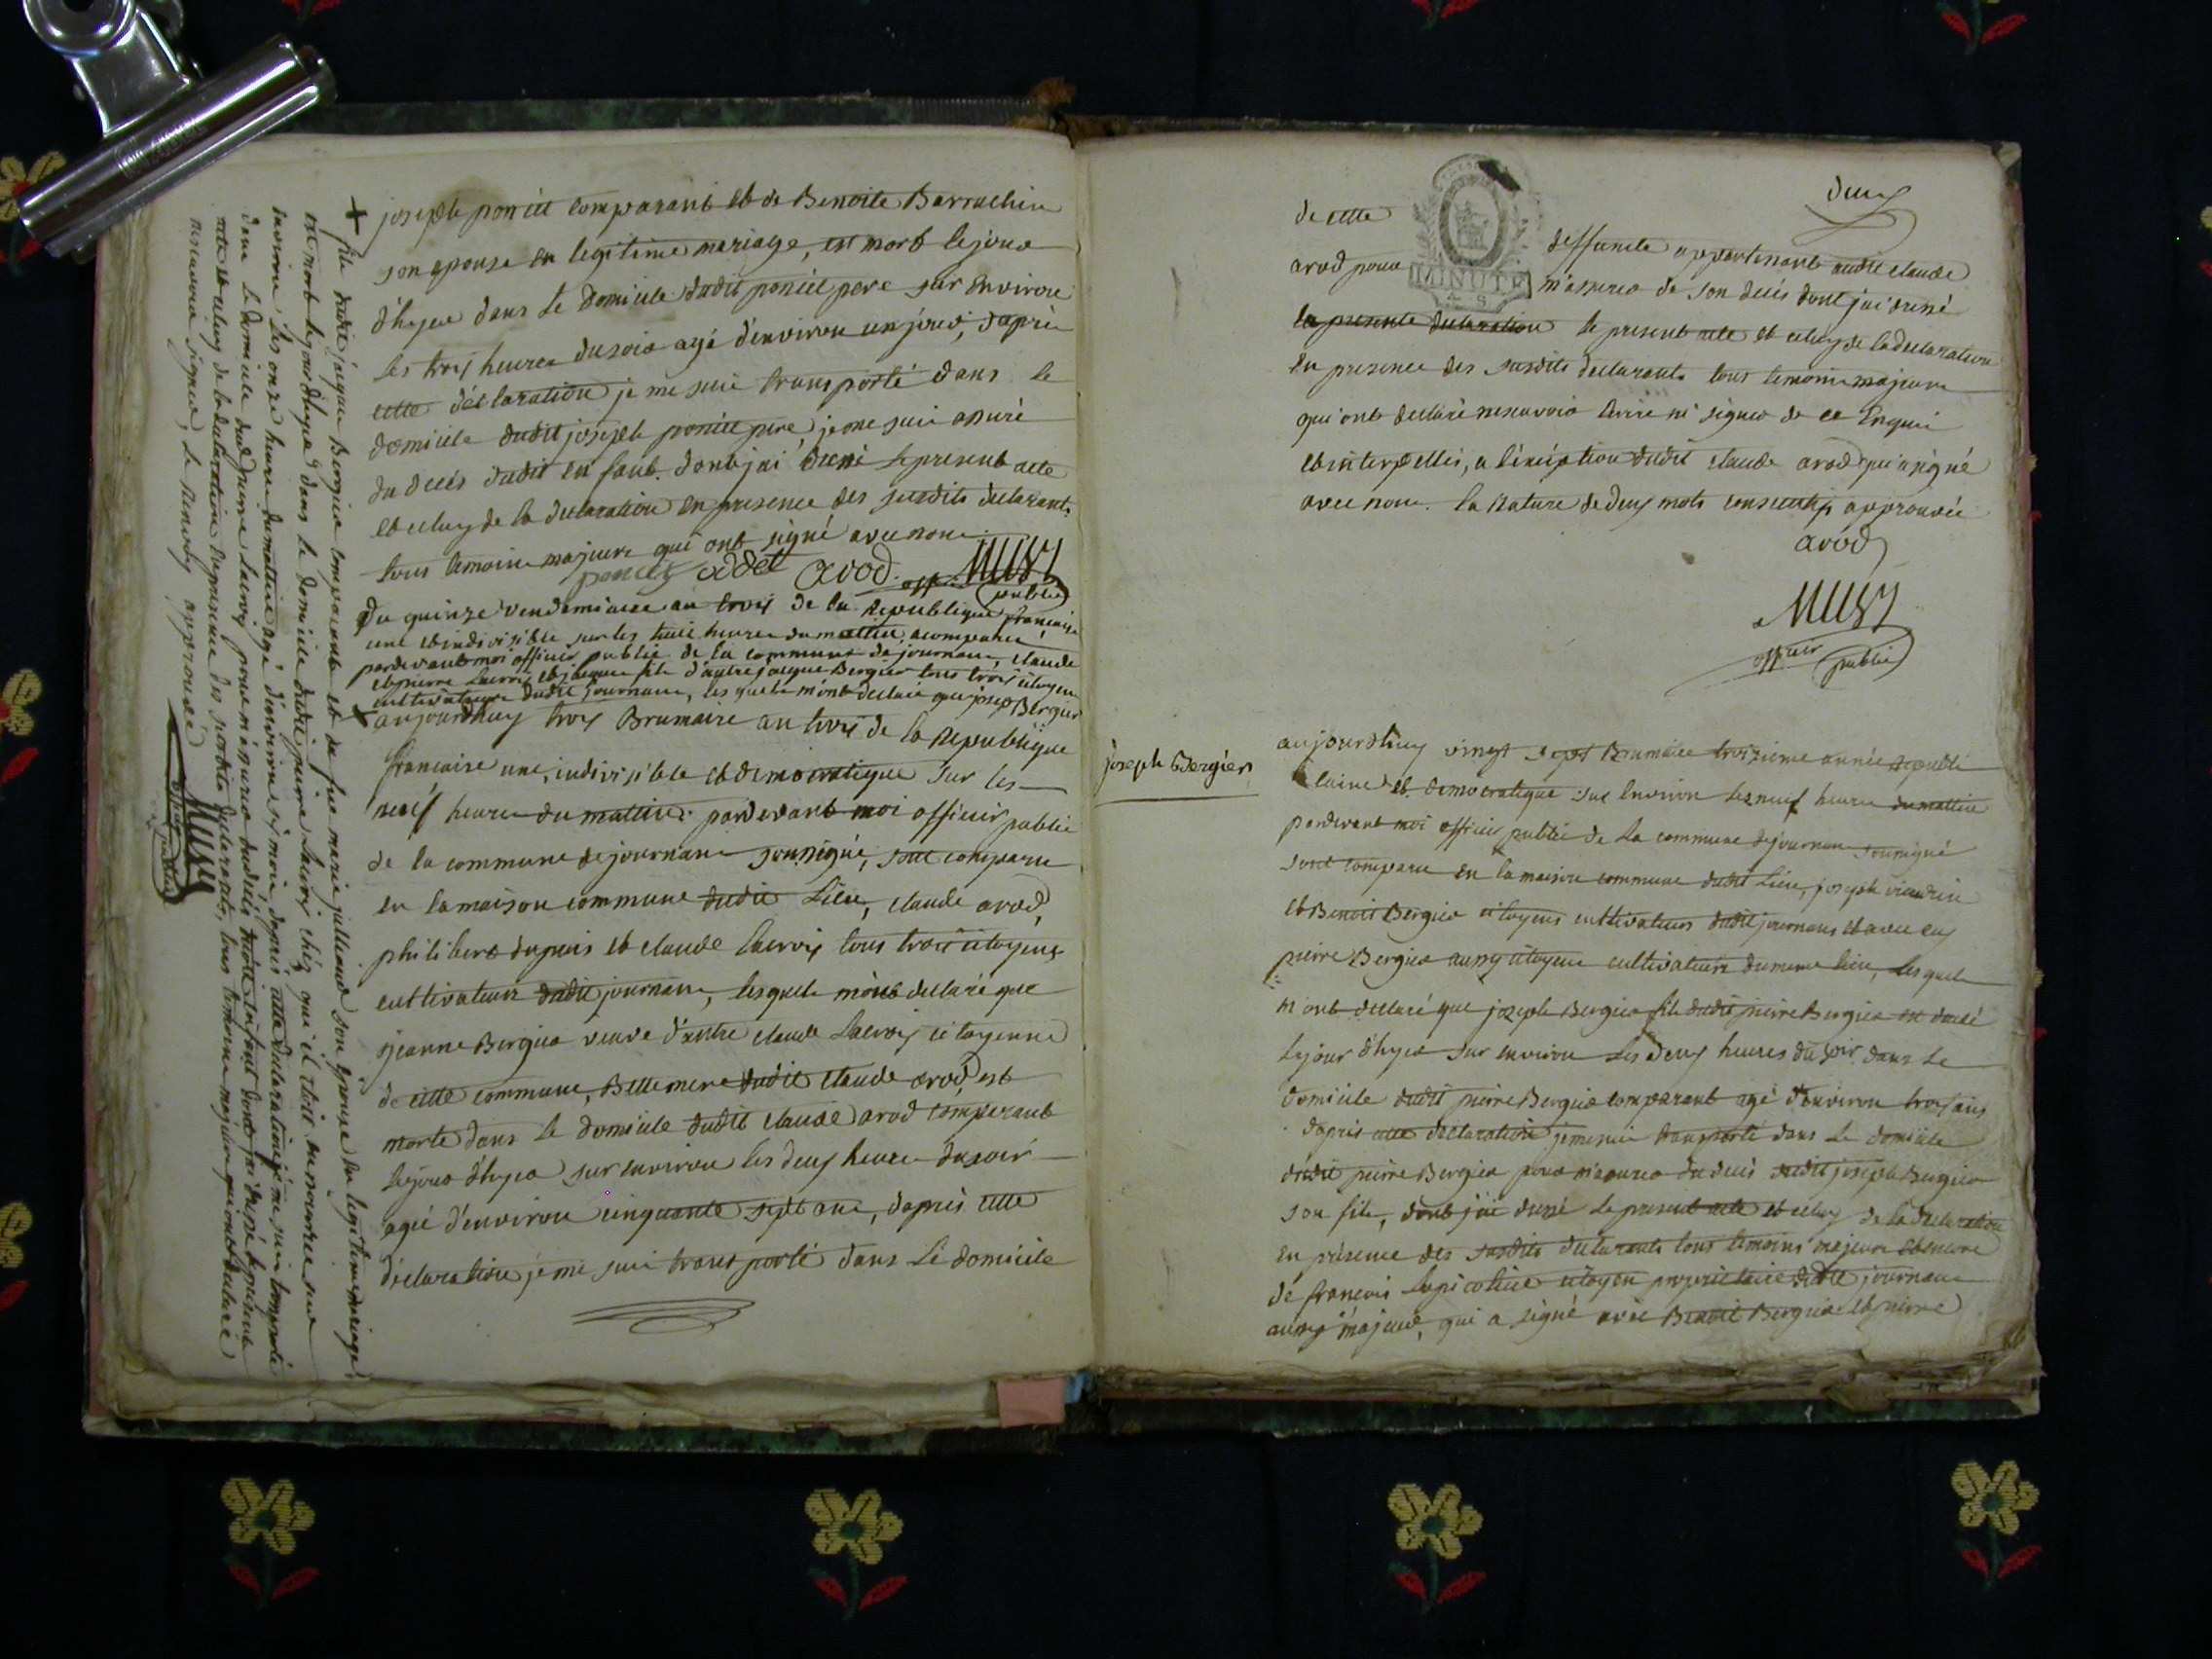 joseph poncét comparant et de Benoite Barrachin
son epouse en legitime mariage, est mort le jour
d'hyer dans le domicile dudit poncét pere sur environ
les trois heures du soir agé d'environ un jour, daprès
cette déclaration je me suis transporté dans le
domicile dudit joseph poncét pere, je me suis assuré
du decés dudit enfant. dont jai dressé le present acte
et celuy de la declaration en presence des susdits declarants
tous temoins majeurs qui ont signé avec nous
poncet adet arod. offi. MUSY
public
Du quinze vendemiaire an trois de la Republique francaise
une et indivisible sur les huit heures du mattin, a comparu
pardevant moi officier public de la commune de journans, claude
et pierre Lacroix et jacques fils d'autre jacque Bergier tous trois citoyens
cultivateurs dudit journans, les quels mont declaré que joseph Bergier
+ fils dudit jacques Bergier comparant et de fue marie juilleard son epouse en legitime mariage
est mort le jour d'hyer dans le domicile dudit pierre Lacroix chéz qui il étoit en nourrice sur
environ les onze heures du mattin agé d'environ six mois, daprés cette declaration je me suis transporté
dans le domicile dud. pierre Lacroix pour m'assurer du decés dudit enfant dont jai dressé le present
acte et celuy de la declaration en presence des susdits declarants, tous temoins majeurs qui ont declaré
ne scavoir signer, le renvoy approuvé
MUSY
officier public
aujourdhuy trois Brumaire an trois de la Republique
francaise une, indivisible et democratique sur les
neuf heures du mattin. pardevant moi officier public
de la commune de journans soussigné, sont comparu
en la maison commune dudit Lieu, claude arod,
philibert dupuis et claude Lacroix tous trois citoyens
cultivateurs dudit journans, lesquels mont declaré que
jeanne Bergier veuve d'autre claude Lacroix citoyenne
de cette commune, Bellemere dudit claude arod est
morte dans le domicile dudit claude arod comparant
le jour d'hyer sur environ les deux heures du soir
agée d'environ cinquante sept ans, daprés cette
déclaration je me suis transporté dans le domicile
deux
de cette deffuncte appartenant audit claude
arod pour m'assurer de son decés dont jai dressé
MINUTE
la presente declaration le present acte et celuy de la declaration
en presence des susdits declarants tous temoins majeurs
qui ont declaré ne scavoir écrire ni signer de ce Enquis
et interpellés, a l'éxception dudit claude arod qui a signé
avec nous. la Rature de deux mots consecutifs approuvée
arod
MUSY
officier public
joseph Bergier
aujourdhuy vingt sept Brumaire troisieme année republi
caine et democratique sur environ les neuf heures du mattin
pardevant moi officier public de la commune de journans soussigné
sont comparu en la maison commune dudit Lieu, joseph
et Benoit Bergier citoyens cultivateurs dudit journans et avec eux
pierre Bergier aussy citoyen cultivateur du meme lieu, lesquels
m'ont declaré que joseph Bergier fils dudit pierre Bergier est decedé
le jour d'hyer sur environ les deux heures du soir dans le
domicile dudit pierre Bergier comparant agé d'environ trois ans
daprés cette declaration je me suis transporté dans le domicile
dudit pierre Bergier pour m'assurer du decés dudit joseph Bergier
son fils, dont jai dressé le present acte et celuy de la declaration
en présence des susdits declarants tous temoins majeurs et encore
de francois citoyen proprietaire dudit journans
aussy majeur, qui a signé avec Benoit Bergier et pierre